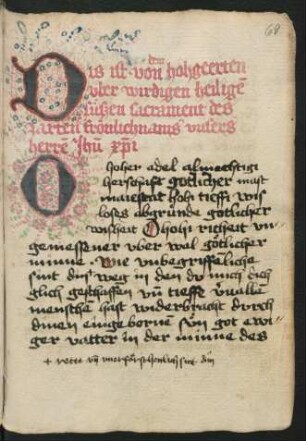 68
dem
Dis ist von hohgeerten
vber wirdigen heilige͂
süszen sacrament des
zarten frönlichnams vnsers
herre͂ Jhū xp̄i
O hoher adel almechtigi
herschafft götlicher
maiestat hoh tieffi wis
loses abgründe götlicher
wisheit O hohi richeit vn
gemessener vber wal götlicher
minne. Wie vnbegriffenliche
sint din weg in den du mich
glich geschaffen vn̄ tieffe
menschen hast widerbracht durch
dinen eingebornen sun got ewi
ger vatter in der minne des
+ vn̄ din